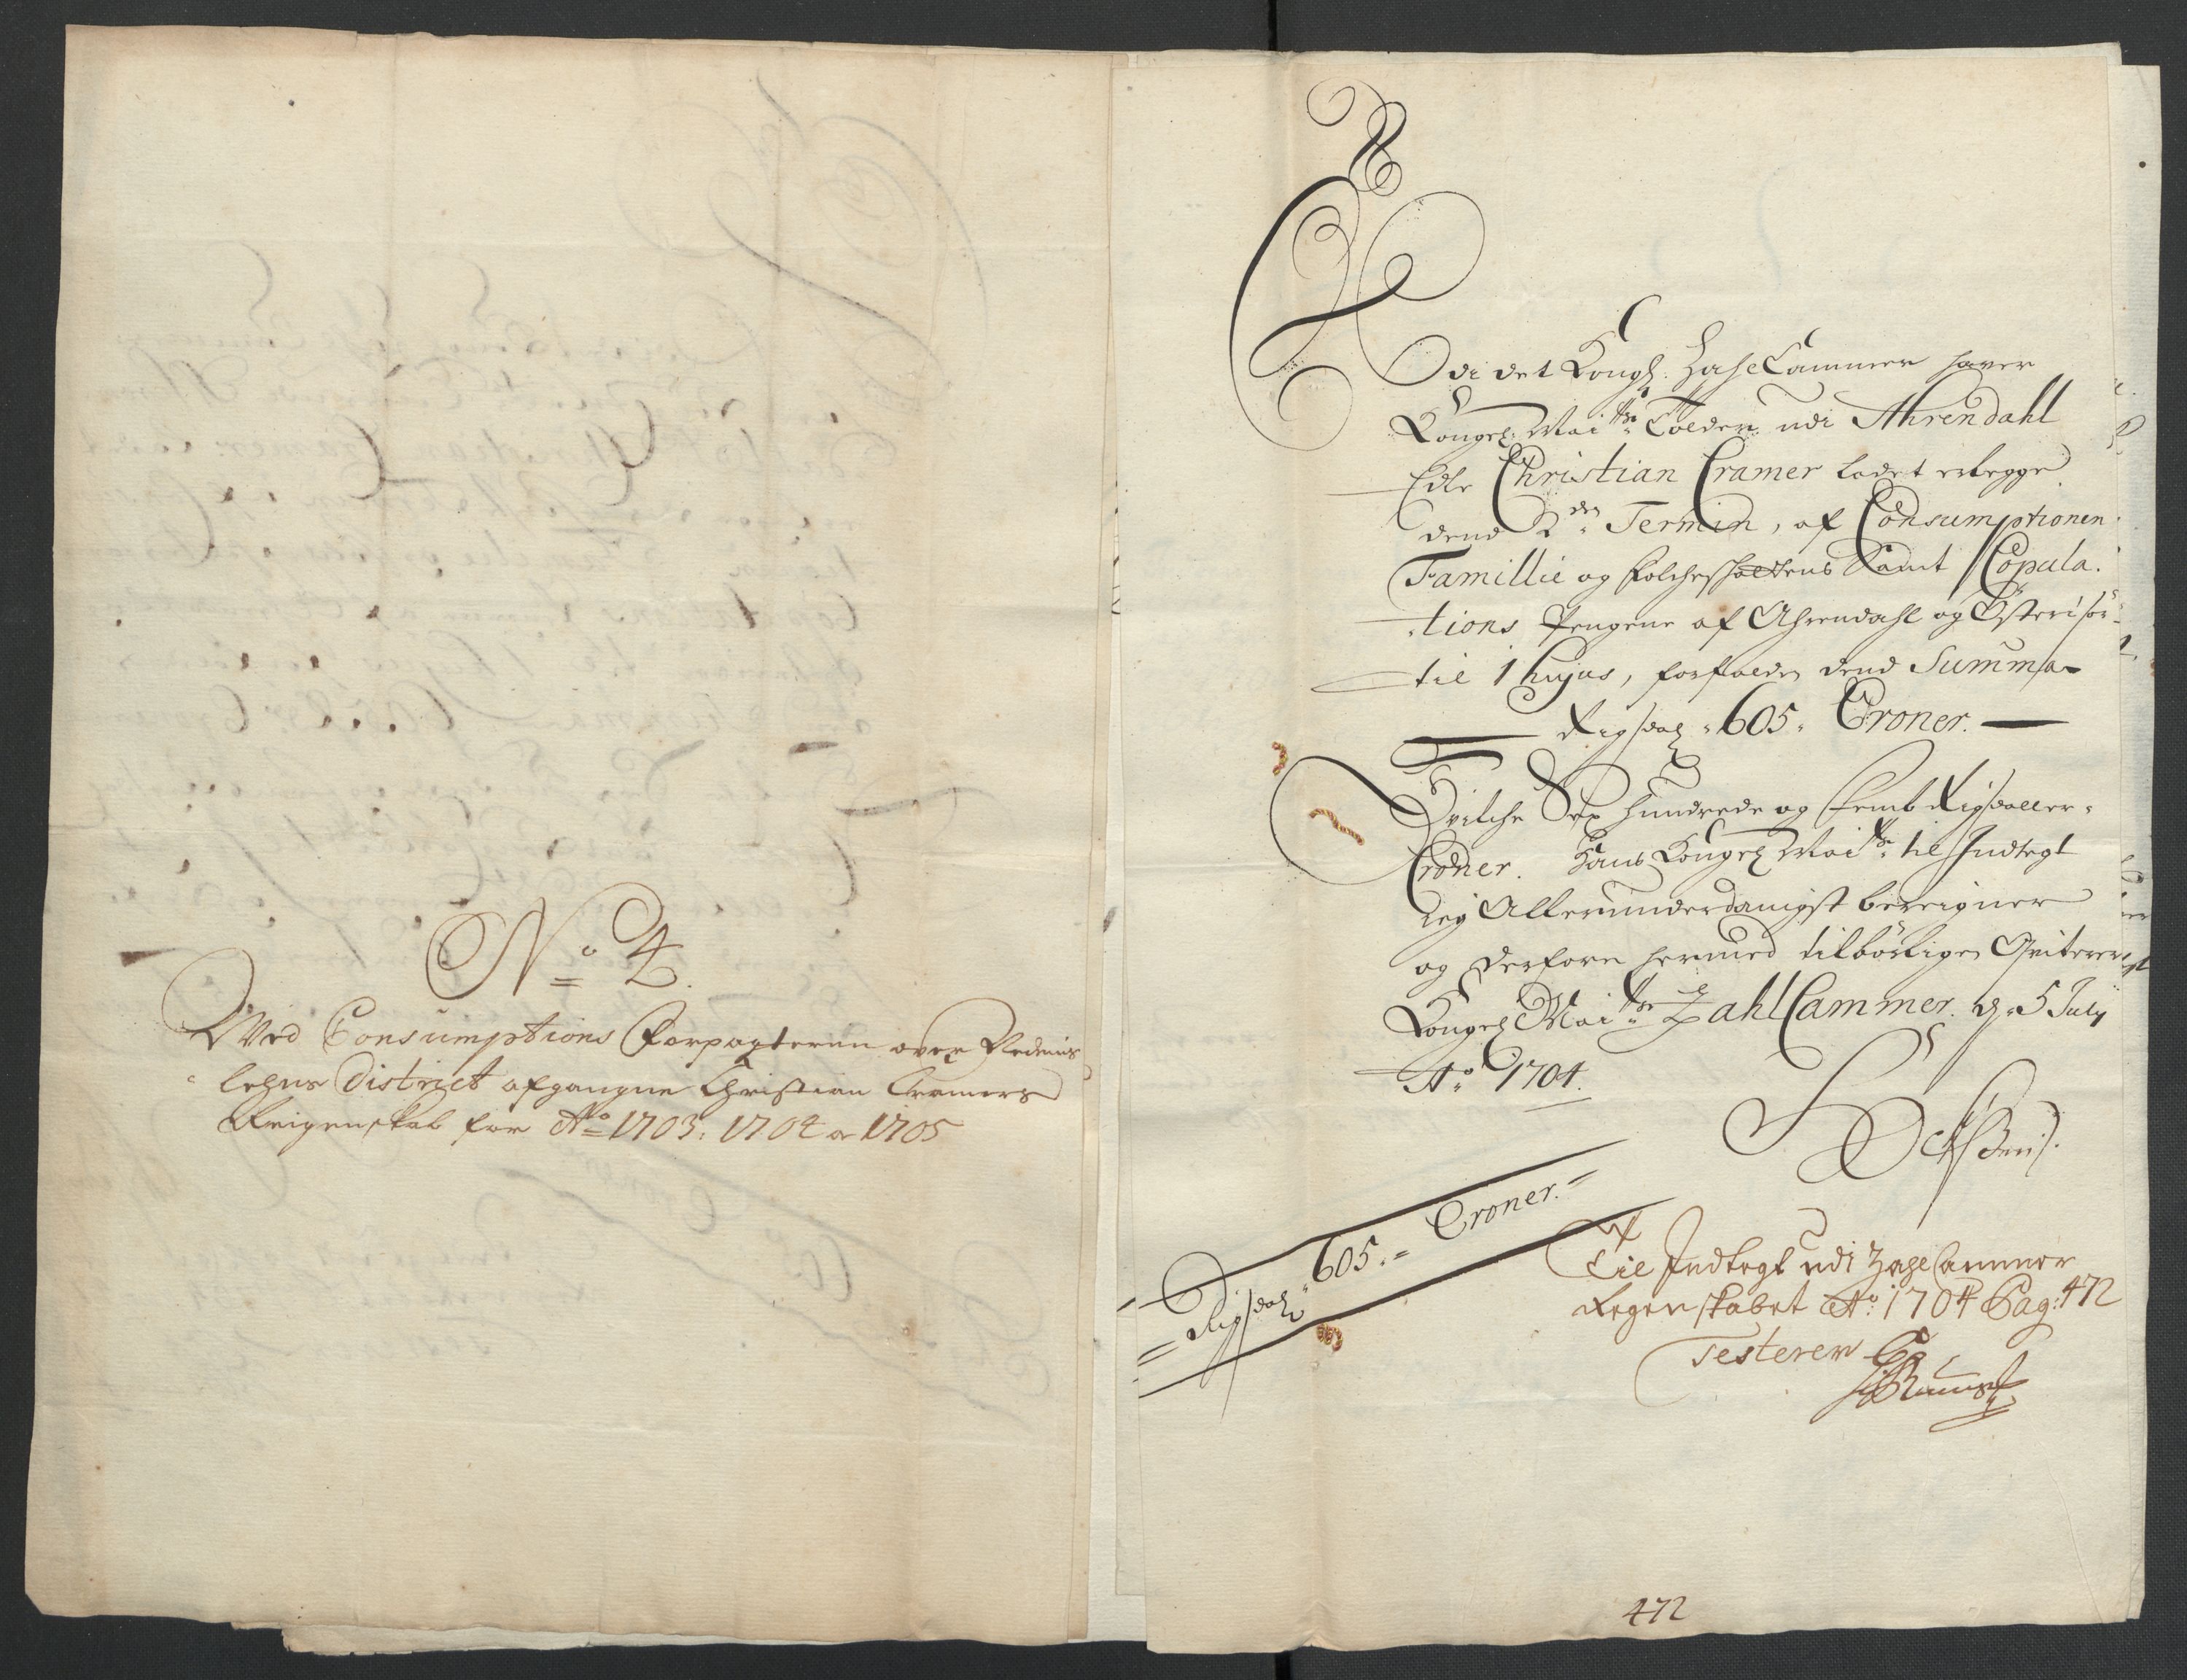 No 4.
Ved Consumptions Forpagteren over Nedenis
lehns District afgangne Christian Cramers
Reigenskab for Ao 1703: 1704 og 1705
Udi det Kongl: Zahl Cammer haver
Kongel: Mai:tts Tolder udi Ahrendahl
Edle Christian Cramer ladet erlegge
dend 2den Termin, af Consumptionen
Famillie og Folcheskattens Samt Copula-
tions Pengene af Ahrendahl og Østeriisør
til 1 hujus, forfalden dend Summa
Rigsdal 605. Croner.
Hvilche Sex hundrede og Femb Rigsdaller
Croner. Hans Kongel Mai:tt til Indtegt
Jeg Allerunderdanigst bereigner
og derfore hermed tilbørligen Qviterer
Kongel Mai:tts ZahlCammer. d. 5 July
Ao 1704.
Rigsdal 605. Croner.
Til Indtegt udi Zahl Cammer
Regenskabet Ao: 1704 Pag: 472
Testerer
472